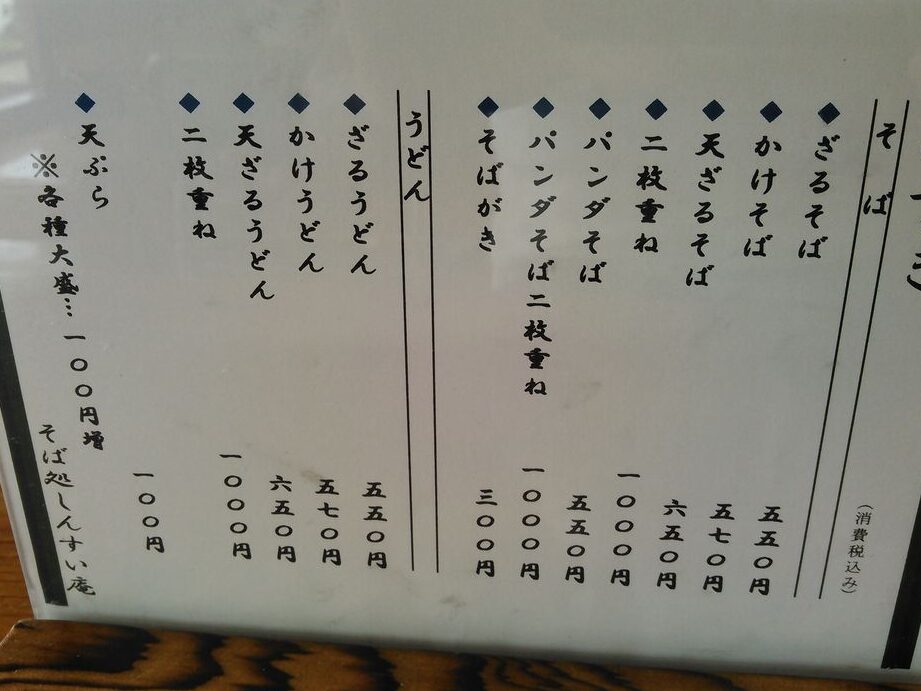 そば
（消費税込み）
ざるそば 五五〇円
かけそば 五七〇円
天ざるそば 六五〇円
二枚重ね 一〇〇〇円
パンダそば 五五〇円
パンダそば二枚重ね 一〇〇〇円
そばがき 三〇〇円
うどん
ざるうどん 五五〇円
かけうどん 五七〇円
天ざるうどん 六五〇円
二枚重ね 一〇〇〇円
天ぷら 一〇〇円
※各種大盛…一〇〇円増
そば処しんすい庵